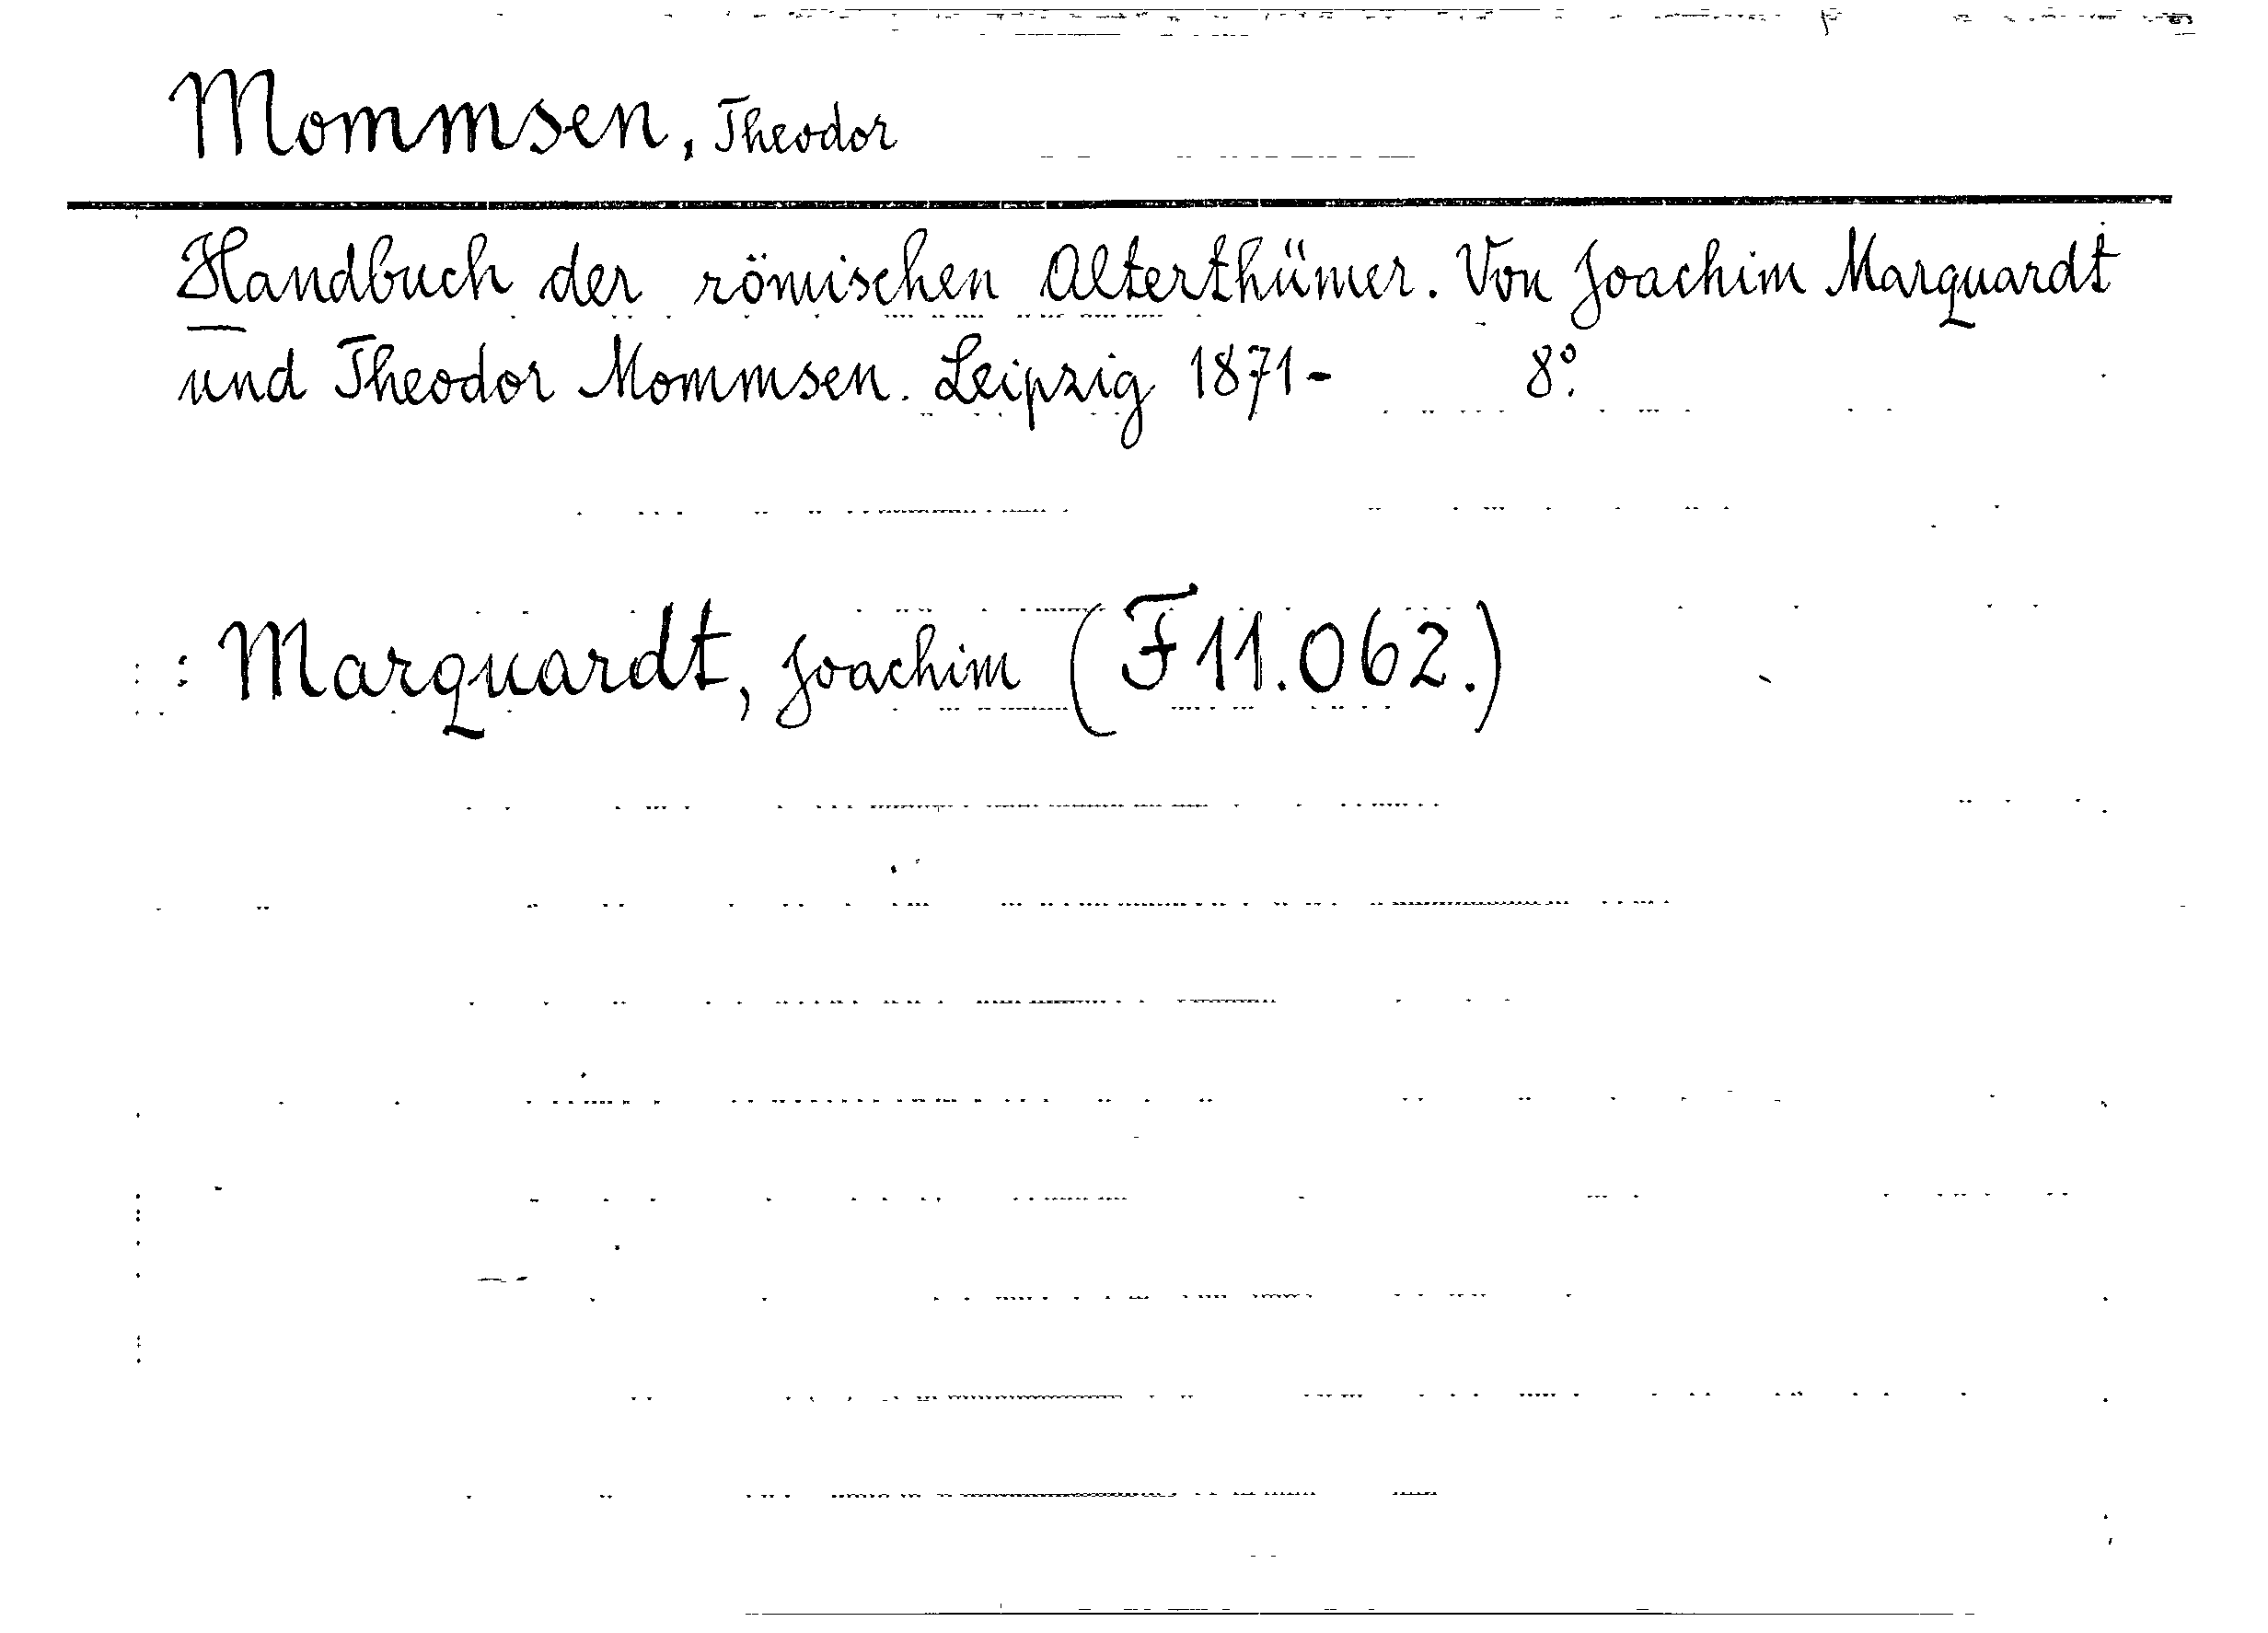 Mommsen, Theodor
Handbuch der römischen Alterthümer. Von Joachim Marquardt
und Theodor Mommsen. Leipzig 1871- 8°.
: Marquardt, Joachim (F 11.062.)